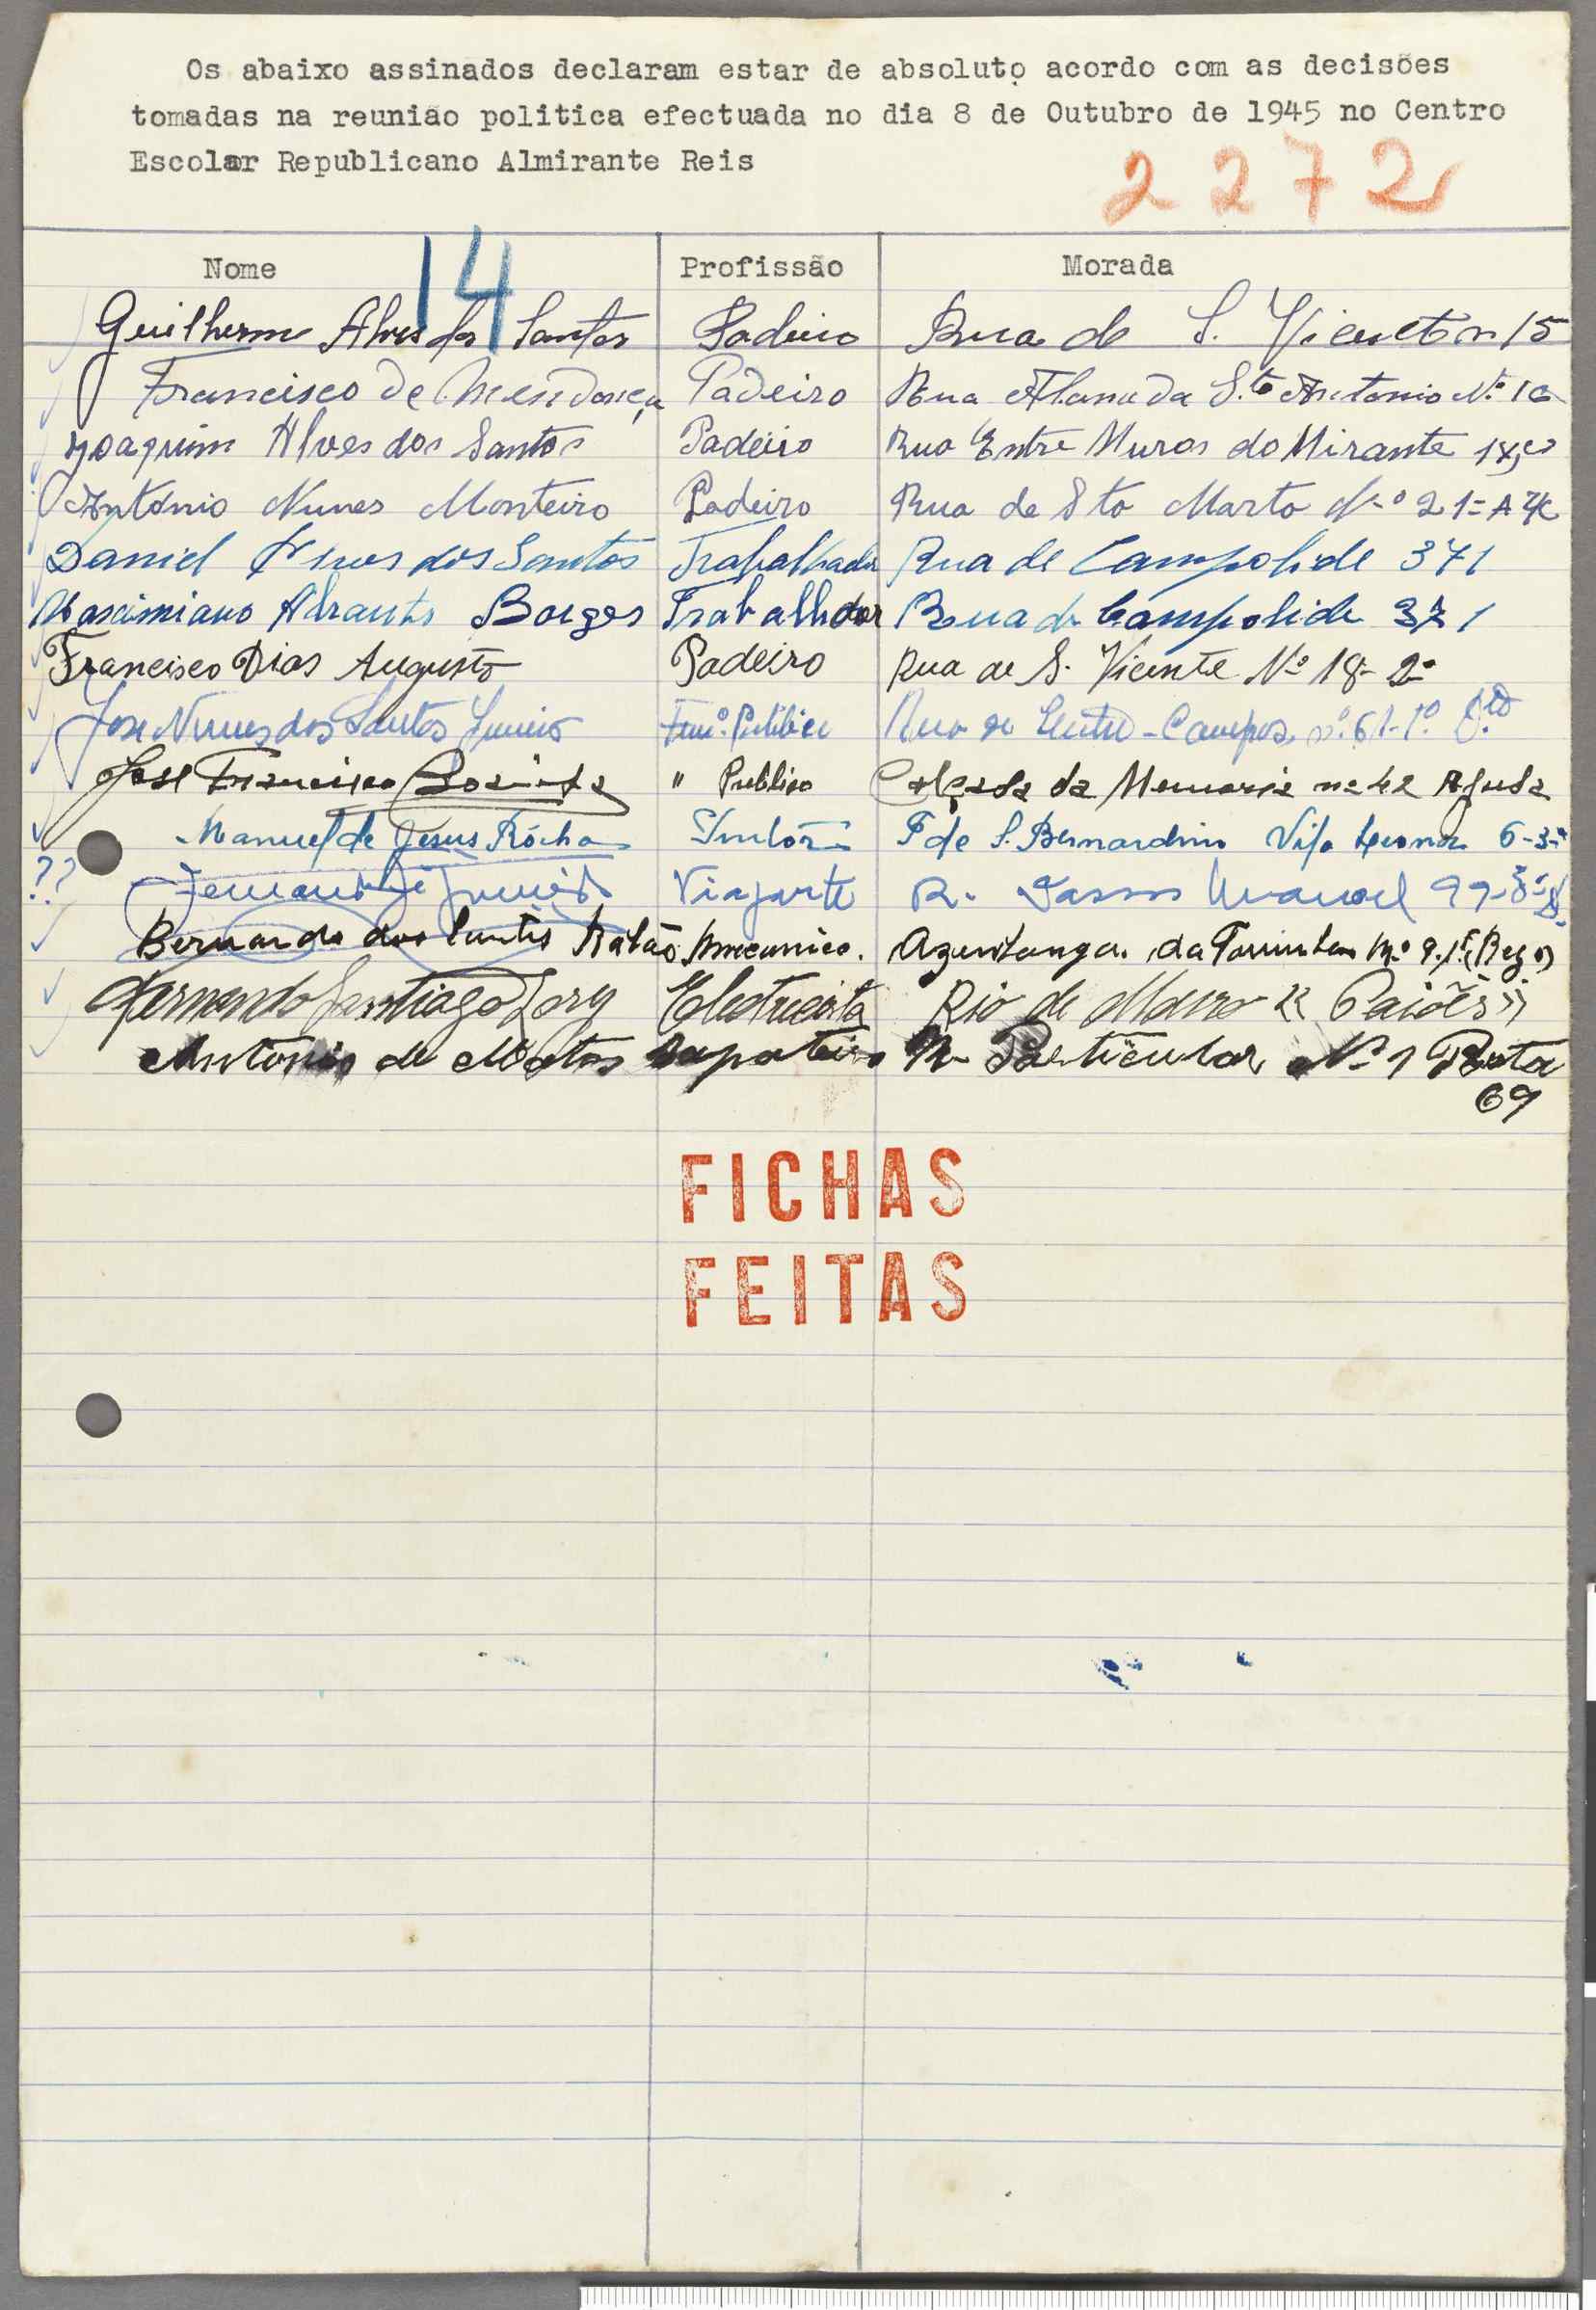 Os abaixo assinados declaram estar de absoluto acordo com as decisões
tomadas na reunião politica efectuada no dia 8 de Outubro de 1945 no Centro
Escolar Republicano Almirante Reis
2272
14
Nome Profissão Morada
Guilherme Alves dos Santos Padeiro Rua de S. Vicente n 15
Francisco de Mendonça Padeiro Rua Alameda S.to Antonio Nº 10
Joaquim Alves dos Santos Padeiro Rua Entre Muros do Mirante
António Nunes Monteiro Padeiro Rua de Sta Marta Nº 21=A
Daniel dos Santos Trabalhador Rua de Campolide 371
Abrantes Borges Trabalhador Rua de Campolide 371
Francisco Dias Augusto Padeiro Rua de S. Vicente Nº 18-2º
Jose Nunes dos Santos Junior Func. Publico Rua de Entre-Campos nº 61-1º D.to
Jose Francisco " Publico Calçada da Memoria nº 42 Ajuda
Manuel de Jesus Rócha Pintôr T de S. Bernardino Vila Leonor 6-3º
?? Fernando Junior Viajante R. Passos Manuel 99-3º
Bernardo dos Santos Mecanico. Azinhaga da Torrinha Nº 9.
Fernando Santiago Electricista Rio de Mouro "Paiões"
Antonio de Matos Sapateiro R Particular Nº 1
69
FICHAS
FEITAS